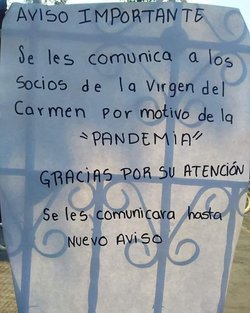 AVISO IMPORTANTE
Se les comunica a los
socios de la Virgen del
Carmen por motivo de la
"PANDEMIA"
GRACIAS POR SU ATENCIÓN
Se les comunicara hasta
NUEVO AVISO